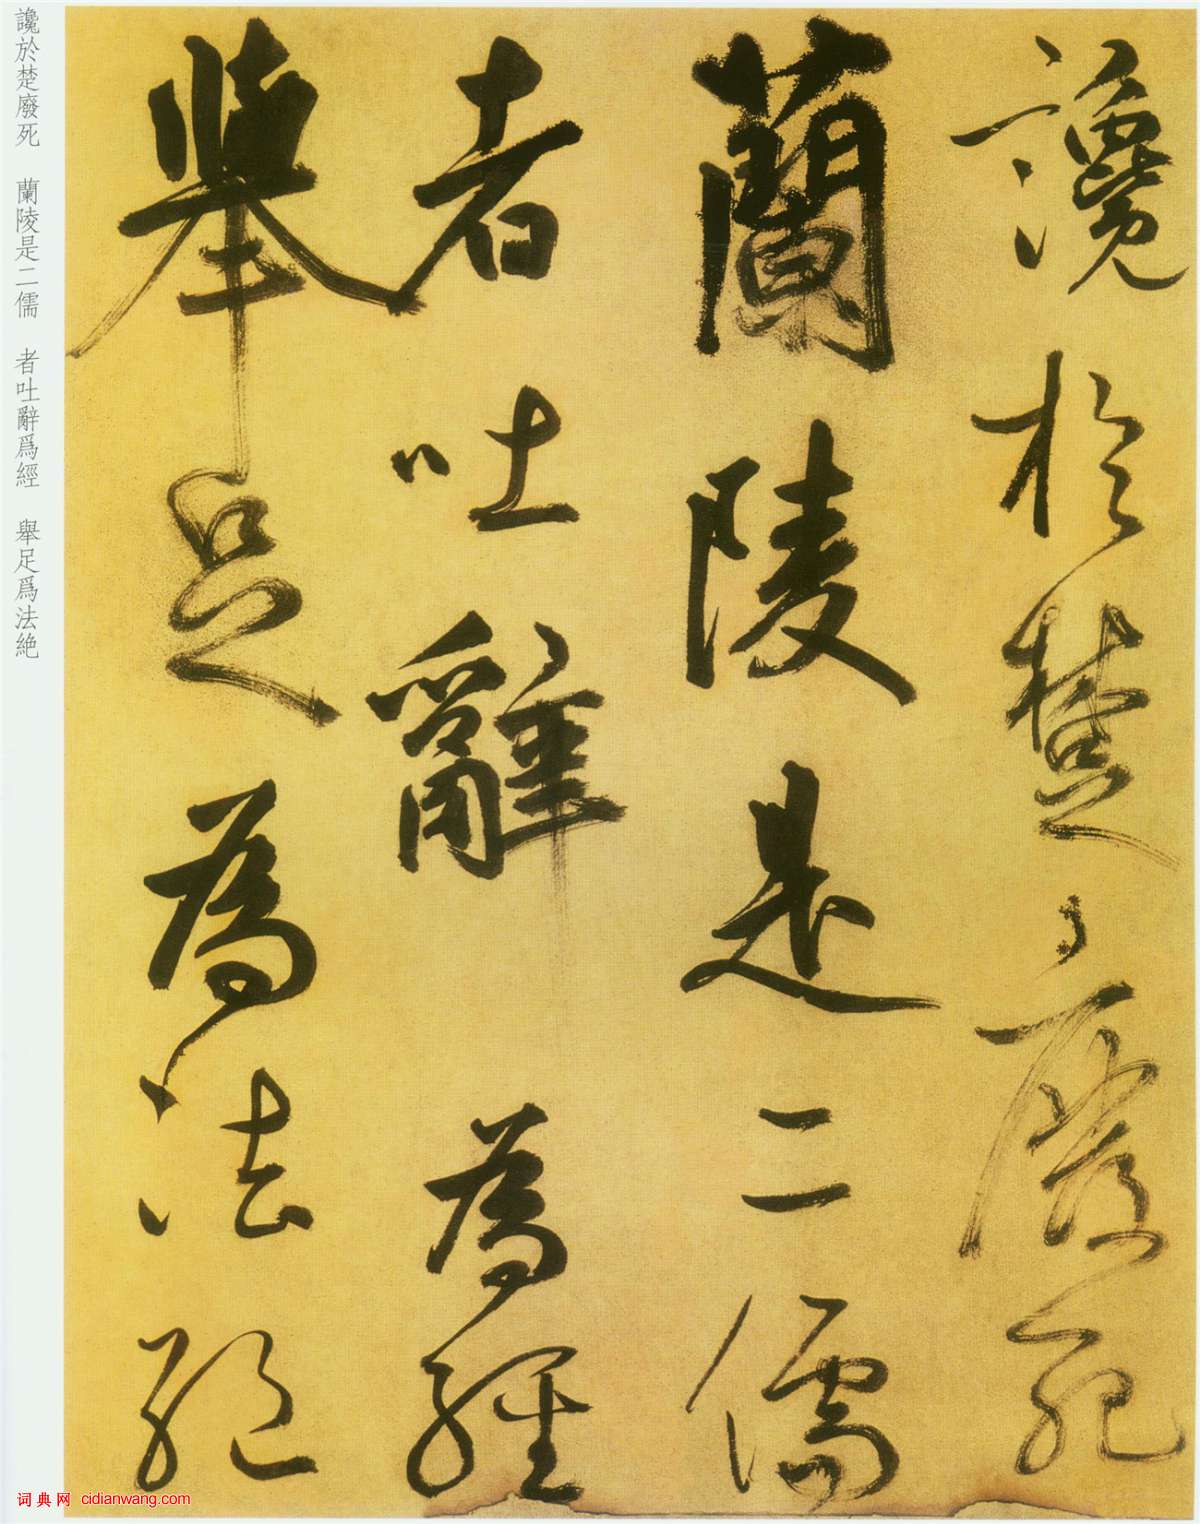 讒於楚廢死
蘭陵是二儒
者吐辭為經
舉足為法絕
讒於楚廢死　蘭陵是二儒　者吐辭爲經　舉足爲法絶
词典网 cidianwang.com